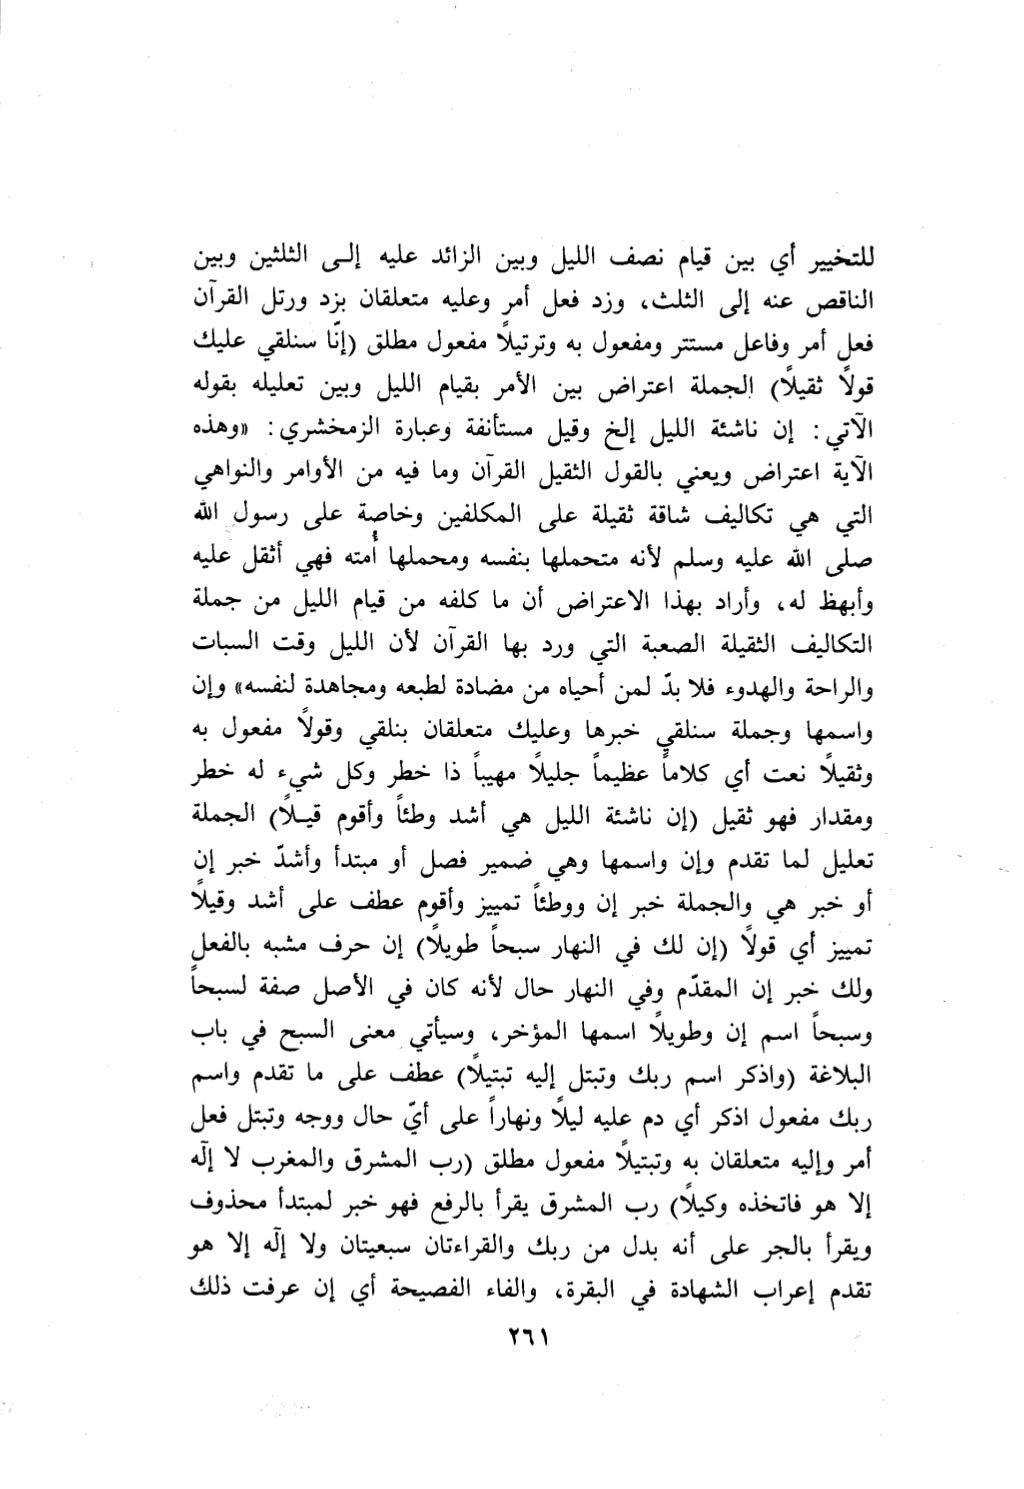 للتخيير أي بين قيام نصف الليل وبين الزائد عليه إلى الثلثين وبين
الناقص عنه إلى الثلث، وزد فعل أمر وعليه متعلقان بزد ورتل القرآن
فعل أمر وفاعل مستتر ومفعول به وترتيلاً مفعول مطلق (إنّا سنلقي عليك
قولاً ثقيلاً) الجملة اعتراض بين الأمر بقيام الليل وبين تعليله بقوله
الآتي: إن ناشئة الليل إلخ وقيل مستأنفة وعبارة الزمخشري: «وهذه
الآية اعتراض ويعني بالقول الثقيل القرآن وما فيه من الأوامر والنواهي
التي هي تكاليف شاقة ثقيلة على المكلفين وخاصة على رسول الله
صلى الله عليه وسلم لأنه متحملها بنفسه ومحملها أُمته فهي أثقل عليه
وأبهظ له، وأراد بهذا الاعتراض أن ما كلفه من قيام الليل من جملة
التكاليف الثقيلة الصعبة التي ورد بها القرآن لأن الليل وقت السبات
والراحة والهدوء فلا بدّ لمن أحياه من مضادة لطبعه ومجاهدة لنفسه» وإن
واسمها وجملة سنلقي خبرها وعليك متعلقان بنلقي وقولاً مفعول به
وثقيلاً نعت أي كلاماً عظيماً جليلاً مهيباً ذا خطر وكل شيء له خطر
ومقدار فهو ثقيل (إن ناشئة الليل هي أشد وطئاً وأقوم قيلاً) الجملة
تعليل لما تقدم وإن واسمها وهي ضمير فصل أو مبتدأ وأشدّ خبر إن
أو خبر هي والجملة خبر إن ووطئاً تمييز وأقوم عطف على أشد وقيلاً
تمييز أي قولاً (إن لك في النهار سبحاً طويلاً) إن حرف مشبه بالفعل
ولك خبر إن المقدّم وفي النهار حال لأنه كان في الأصل صفة لسبحاً
وسبحاً اسم إن وطويلاً اسمها المؤخر، وسيأتي معنى السبح في باب
البلاغة (واذكر اسم ربك وتبتل إليه تبتيلاً) عطف على ما تقدم واسم
ربك مفعول اذكر أي دم عليه ليلاً ونهاراً على أيّ حال ووجه وتبتل فعل
أمر وإليه متعلقان به وتبتيلاً مفعول مطلق (رب المشرق والمغرب لا إلٓه
إلا هو فاتخذه وكيلاً) رب المشرق يقرأ بالرفع فهو خبر لمبتدأ محذوف
ويقرأ بالجر على أنه بدل من ربك والقراءتان سبعيتان ولا إلٓه إلا هو
تقدم إعراب الشهادة في البقرة، والفاء الفصيحة أي إن عرفت ذلك
٢٦١